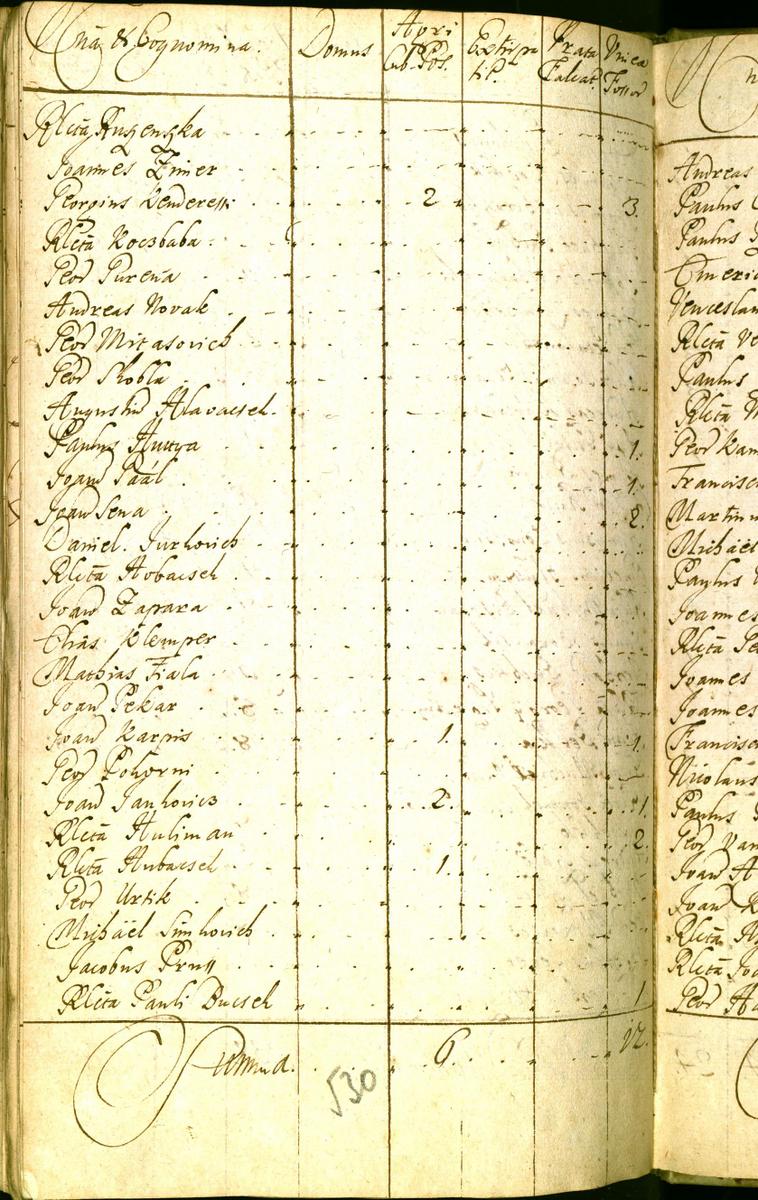 Nna & Cognomina. Domus Agri Cub. Pos. Extirpa tit. Prata Falcat. Vinea Fossor
Rlcta Ruzenszka
Joannes Zimer
Georgius Kenderessi 2 3.
Rlcta Kocsbaba
Geor
Andreas Novak
Geor Mitasovich
Geor Skobla
Augustin Hlavacseh.
Paulus Huttya 1.
Joan Paál 1.
Joan Sena 2.
Daniel Jurkovich
Rlcta Hobacseh
Joan Zapara
Elias Klemper
Mathias Fiala
Joan Pekar
Joan Karpis 1. 1.
Geor Pohorni
Joan Jankovics 2. 1
Rlcta Huliman 2.
Rlcta Hubacseh 1.
Geor Urtik
Michäel Simkovich
Jacobus Pruss
Rlcta Pauli Bucseh 1
Summa. 6. 12.
530
Andreas
Paulus
Paulus
Emeric
Venceslau
Rlcta
Paulus
Rlcta
Geor Kam
Francisc
Martinu
Michäel
Paulus
Joannes
Rlcta
Joannes
Joannes
Francisc
Nicolaus
Paulus
Geor
Joan
Joan
Rlcta
Rlcta
Geor